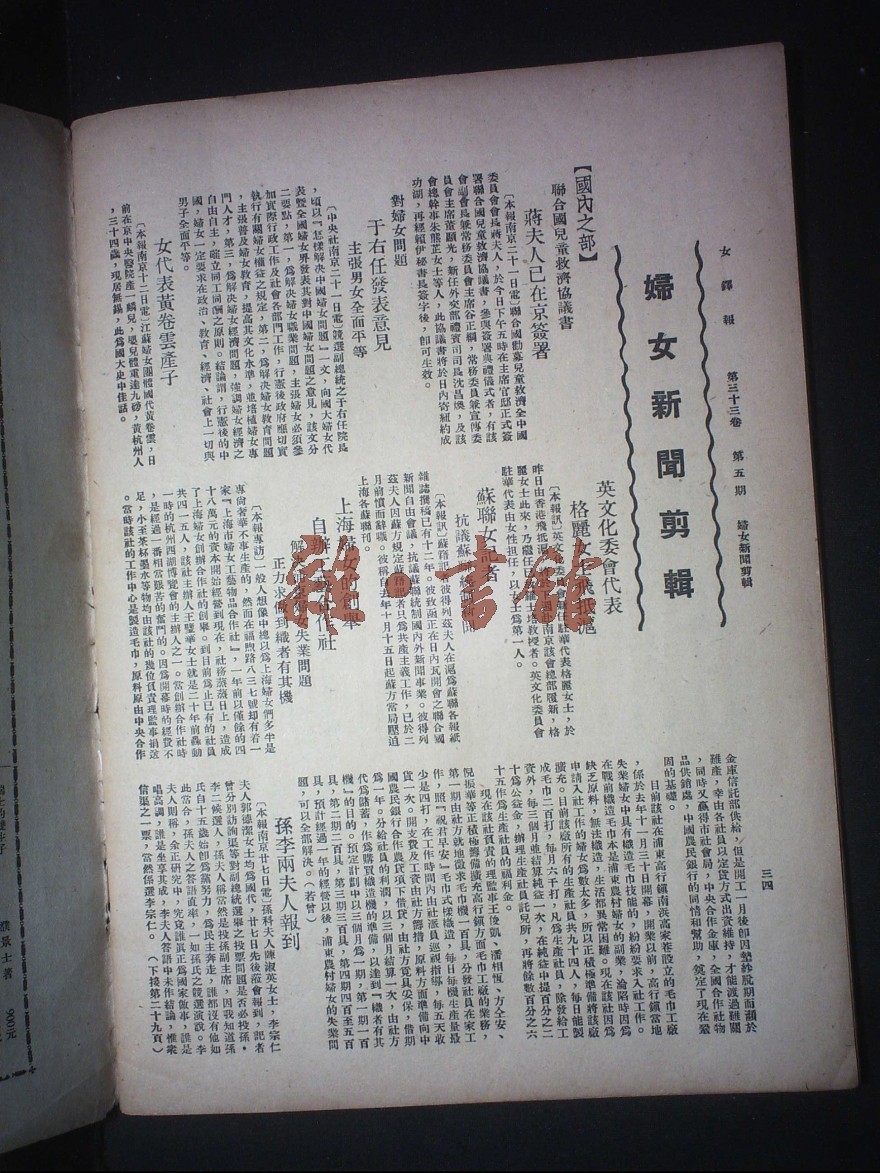 女鐸報　第三十三卷　第五期　婦女新聞剪輯
三四
婦女新聞剪輯
【國內之部】
聯合國兒童救濟協議書
蔣夫人已在京簽署
〔本報南京二十一日電〕聯合國勸募兒童救濟全中國
委員會會長蔣夫人，於今日下午五時在主席官邸正式簽
署聯合國兒童救濟協議書，參與簽署典禮儀式者，有該
會副會長兼常務委員會主席谷正綱，常務委員兼宣傳委
員會主席董顯光，新任外交部禮賓司司長沈昌煥，及該
會總幹事朱熊芷女士等人，此協議書將於日內寄紐約成
功湖，再經賴伊秘書長簽字後，卽可生效。
對婦女問題
于右任發表意見
主張男女全面平等
〔中央社南京二十一日電〕競選副總統之于右任院長
，頃以『怎樣解决中國婦女問題』一文，向國大婦女代
表暨全國婦女界發表其對中國婦女問題之意見，該文分
二要點，第一，為解决婦女職業問題，主張婦女必須參
加實際行政工作及社會各部門工作，行憲後政府應切實
執行有關婦女權益之規定，第二，為解决婦女教育問題
，主張普及婦女教育，提高其文化水準，並培植婦女專
門人才，第三，為解决婦女經濟問題，強調婦女經濟之
自由自主，確立同工同酬之原則。結論謂，行憲後的中
國，婦女一定要求在政治、教育、經濟、社會上一切與
男子全面平等。
女代表黃卷雲產子
〔本報南京十二日電〕江蘇婦女團體國代黃卷雲，日
前在京中央醫院產一麟兒，嬰兒體重達九磅，黃杭州人
，三十四歲，現居無錫，此為國大史中佳話。
英文化委會代表
格麗女士飛抵滬
〔本報訊〕英文化委員會新任駐華代表格麗女士，於
昨日由香港飛抵滬
駐華代表由女性担任，以女士為第一人。
蘇聯女記者
抗議蘇
〔本報訊〕蘇籍記者彼得列茲夫人在滬為蘇聯各報紙
雜誌撰稿已有十二年。彼致函正在日內瓦開會之聯合國
新聞自由會議，抗議蘇聯統制國內外新聞事業。彼得列
茲夫人因蘇方規定蘇籍記者只為共產主義工作，已於二
月前憤而辭職。彼稱自去年十月十五日起蘇方當局壓迫
上海各蘇聯刊。
上海婦女的創舉
自辦
合作社
解决
婦女失業問題
正力求做到織者有其機
〔本報專訪〕一般人想像中總以為上海婦女們多半是
專尙奢華不事生產的，然而在福煦路八三七號却有着一
家『上海市婦女工藝物品合作社』，一年前以僅餘的四
十八萬元的資本開始經營到現在，社務蒸蒸日上，造成
了上海婦女創辦合作社的創舉。到目前為止已有的社員
共四一五人，該社主辦人王璧華女士就是二十年前轟動
一時的杭州西湖博覽會的主辦人之一。當創辦合作社時
，是經過一番相當艱苦的奮鬥的。因為開幕時的經費不
足，小至茶杯墨水等物均由該社的幾位負責理監事捐送
。當時該社的工作中心是製造毛巾，原料原由中央合作
金庫信託部供給，但是開工一月後卽因墊紗脫期而瀕於
難產，幸由各社員以定貨方式出資維持，才能渡過難關
，同時又贏得市社會局，中央合作金庫，全國合作社物
品供銷處，中國農民銀行的同情和幫助，奠定了現在鞏
固的基礎。
目前該社在浦東高行鎮南浜高家巷設立的毛巾工廠
，係於去年十一月三十日開幕，開業以前，高行鎮當地
失業婦女中具有織造毛巾技能的，紛紛要求入社工作。
在戰前織造毛巾本是浦東農村婦女的副業，淪陷時因為
缺乏原料，無法織造，生活都異常困難。現在該社因為
申請入社工作的婦女為數太多，所以正積極準備將該廠
擴充。目前該廠所有的生產社員共九十四人，每日能製
成毛巾二百打，每月六千打，凡為生產社員，除發給工
資外，每三個月並結算純益一次，在純益中提百分之二
十為公益金，辦理生產社員託兒所，再將餘數百分之六
十五作為生產社員的福利金。
現在該社負責的理監事王俊凱、潘相恆、方仝安、
倪振華等正積極籌備擴充高行鎮方面毛巾工廠的業務，
第一期由社方就地徵求毛巾機一百具，分發社員在家工
作，照『祝君早安』毛巾式樣織造，每日每機生產量最
少是四打，在工作時間內由社派員巡視指導，每五天收
貨一次。開支費及工資由社方籌措，原料方面準備向中
國農民銀行合作農貸項下借貸，由社方覓具妥保，借期
為一年。分給社員的利潤，以三個月結算一次，由社方
代為儲蓄，作為購買織造機的準備，以達到『織者有其
機』的目的。預定計劃中以三個月為一期，第一期一百
具，第二期二百具，第三期三百具，第四期四百至五百
具，預計經過一年的經營以後，浦東農村婦女的失業問
題，可以全部解决。（若曾）
孫李兩夫人報到
〔本報南京廿七日電〕孫科夫人陳淑英女士，李宗仁
夫人郭德潔女士均為國代，廿七日先後蒞會報到，記者
曾分別訪詢渠等對副總統選舉之投票問題是否必投孫，
李二候選人，孫夫人稱當然是投孫副主席，因我知道孫
氏自十五歲始卽為黨努力，為民主奔走，誰都沒有他如
此當合，孫夫人之答語直率，一如孫氏之競選演說。李
夫人則稱，余正研究中，究竟誰真正為國家做事，誰是
唱高調，誰是坐享其成，李夫人答語中未作結論，惟衆
信渠之一票，當然係選李宗仁。　（下接第二十九頁）
雜書館
濮景士著
900元